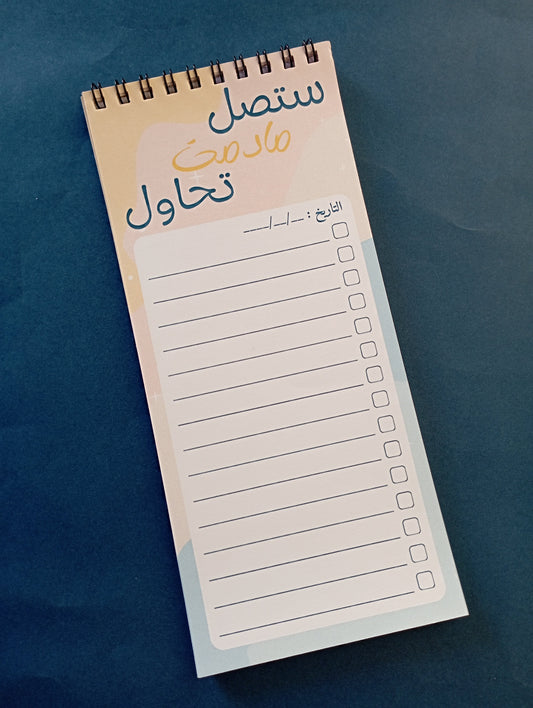 ستصل
مادمت
تحاول
التاريخ : __/__/____